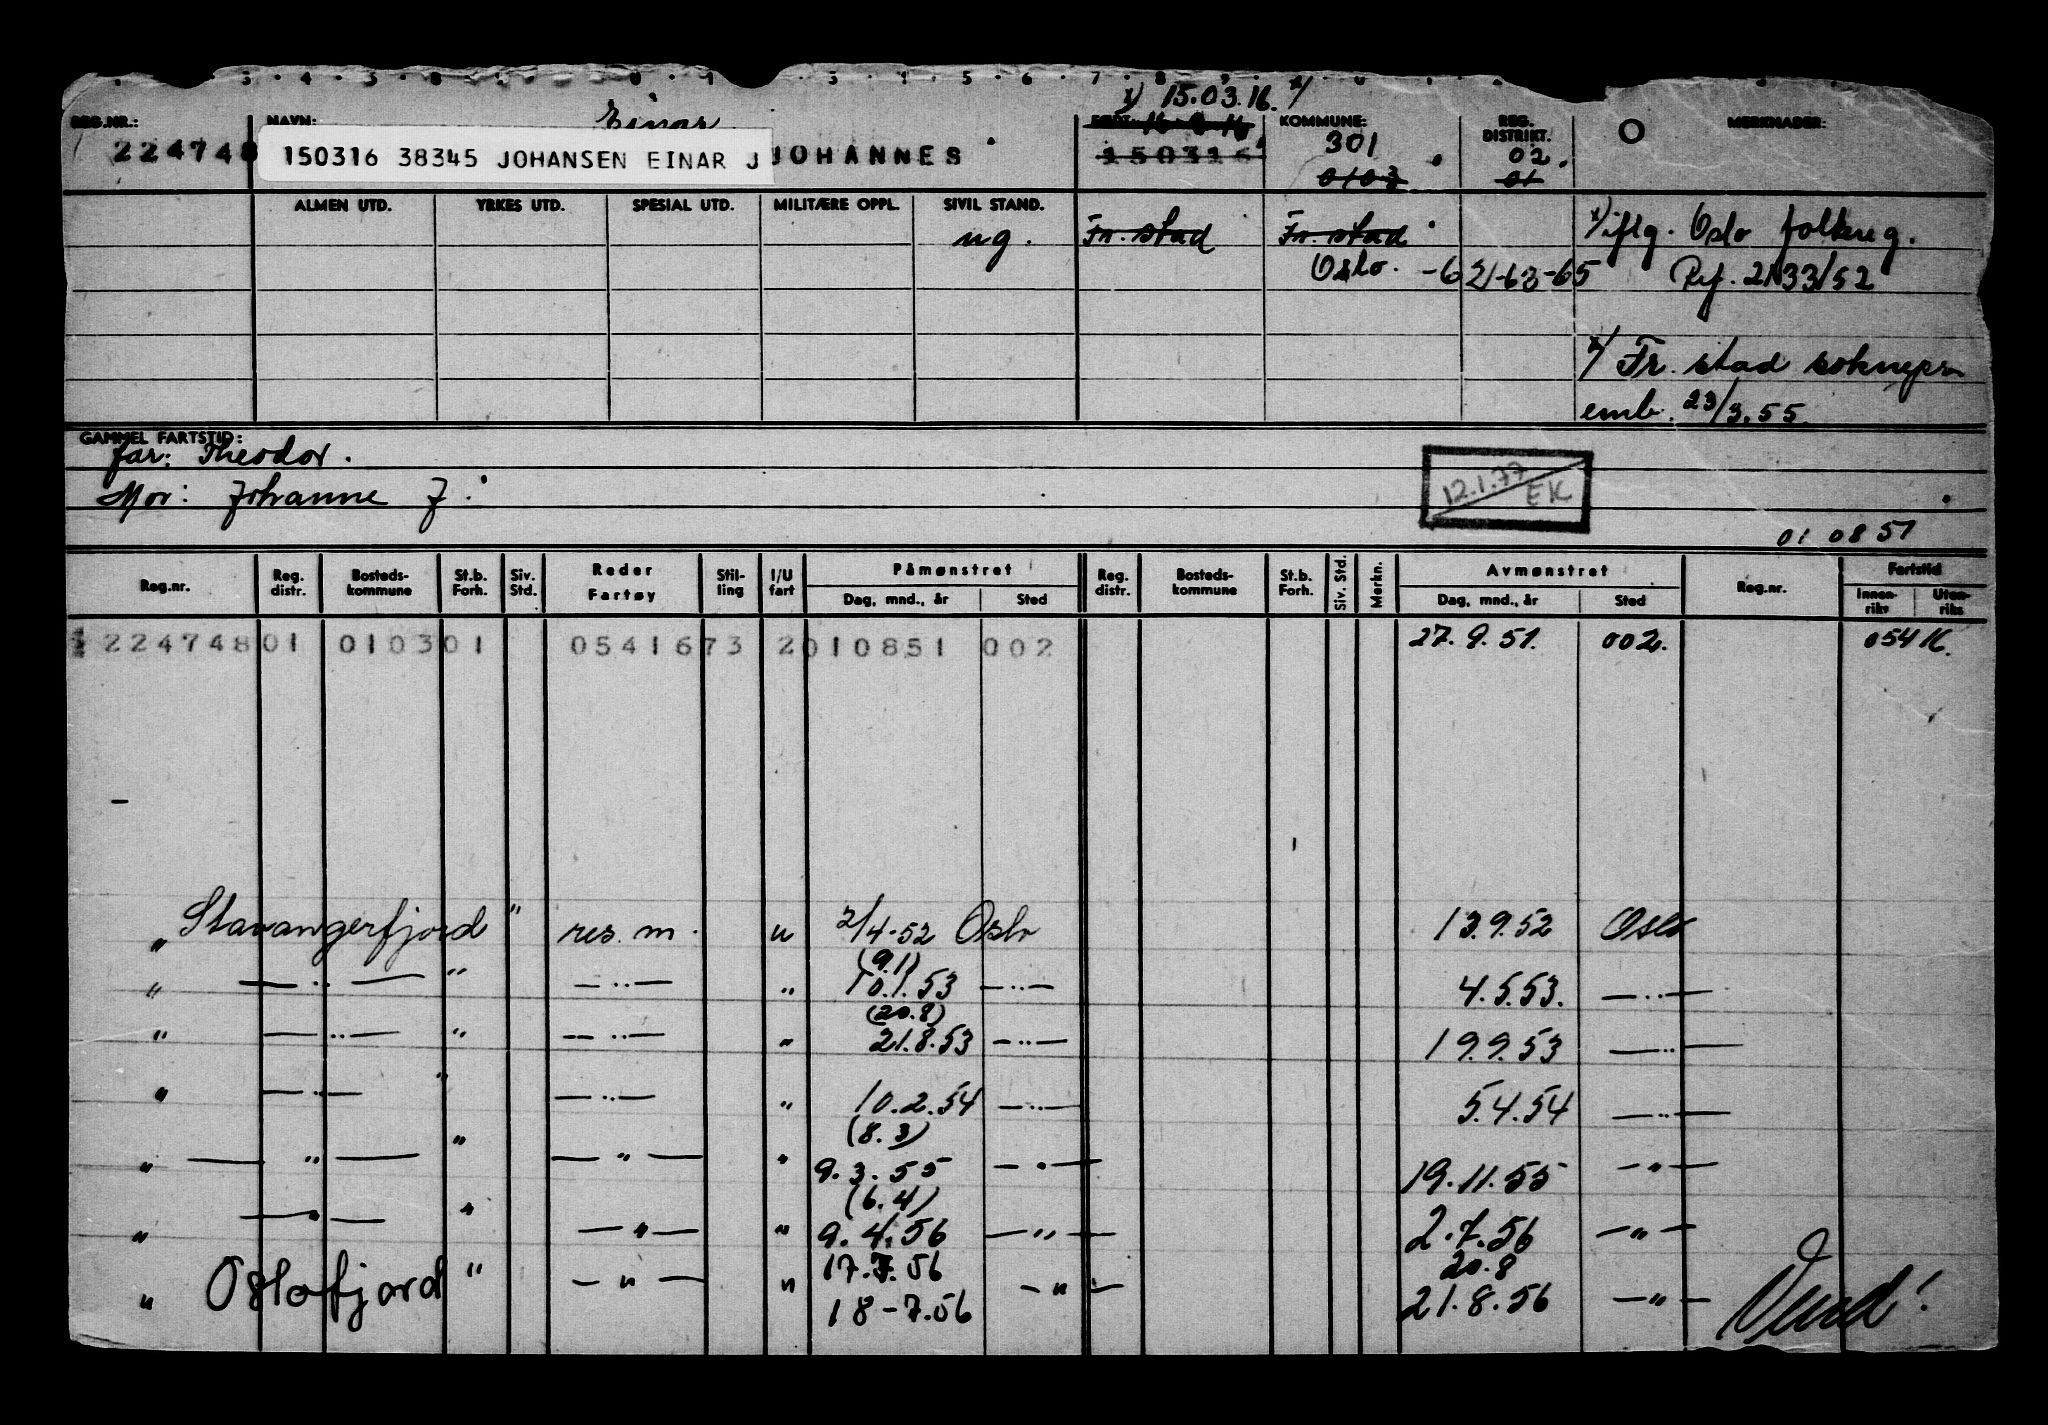 x) 15.03.16. x/
REG.NR.: NAVN: Einar FØDT: 16-3-16 KOMMUNE: REG. DISTRIKT. MERKNADER:
224748 150316 38345 JOHANSEN EINAR J JOHANNES 150316 301 02.
0103 01
ALMEN UTD. YRKES UTD. SPESIAL UTD. MILITÆRE OPPL. SIVIL STAND.
ug. Fr.stad Fr.stad x) iflg. Oslo folkreg.
Oslo. -62/-63-65 Ref. 2133/52
x/ Fr. stad sokneprn
emb. 23/3.55.
GAMMEL FARTSTID:
far: Theodor.
Mor: Johanne J.
12.1.77 EK
01 08 51
Reg.nr. Reg. distr. Bosteds-kommune St.b. Forh. Siv. Std. Reder Fartøy Stil-ling I/U fart Påmønstret Reg. distr. Bosteds-kommune St.b. Forh. Siv. Std. Merkn. Avmønstret Reg.nr. Fartstid
Dag, mnd., år Sted Dag, mnd., år Sted Innen-riks Uten-riks
224748 01 0103 01 0541673 2 010851 002 27.9.51. 002. 05416.
" Stavangerfjord " res. m. u 2/4-52 Oslo 13.9.52 Oslo
(9.1)
" — " — " — " — " 10.1.53 — " — 4.5.53. — " —
(20.8)
" — " — " — " — " 21.8.53 — " — 19.9.53 — " —
" — " — " — " — " 10.2.54 — " — 5.4.54 — " —
(8.3)
" — " — " — " — " 9.3.55 — " — 19.11.55 — " —
(6.4)
" — " — " — " — " 9.4.56 — " — 2.7.56 — " —
17.7.56 20.8
" Oslofjord " — " — " 18-7.56 — " — 21.8.56 — " — Vend!